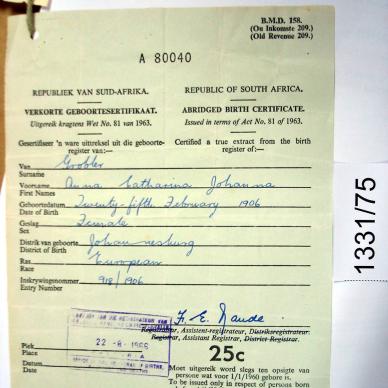 B.M.D. 158.
(Ou Inkomste 209.)
(Old Revenue 209.)
A 80040
REPUBLIEK VAN SUID-AFRIKA. REPUBLIC OF SOUTH AFRICA.
VERKORTE GEBOORTESERTIFIKAAT. ABRIDGED BIRTH CERTIFICATE.
Uitgereik kragtens Wet No. 81 van 1963. Issued in terms of Act No. 81 of 1963.
Gesertifiseer 'n ware uittreksel uit die geboorte- Certified a true extract from the birth
register van:— register of:—
Van Grobler
Surname
Voorname Anna Catharina Johanna
First Names
Geboortedatum Twenty-fifth February 1906
Date of Birth
Geslag Female
Sex
Distrik van geboorte Johannesburg
District of Birth
Ras European
Race
Inskrywingsnommer 918/1906
Entry Number
F. E. Naude
Registrateur, Assistent-registrateur, Distriksregistrateur.
Registrar, Assistant Registrar, District Registrar.
Plek
Place
22 -8- 1966
Datum
Date
25c
Moet uitgereik word slegs ten opsigte van
persone wat voor 1/1/1960 gebore is.
To be issued only in respect of persons born
1331/75